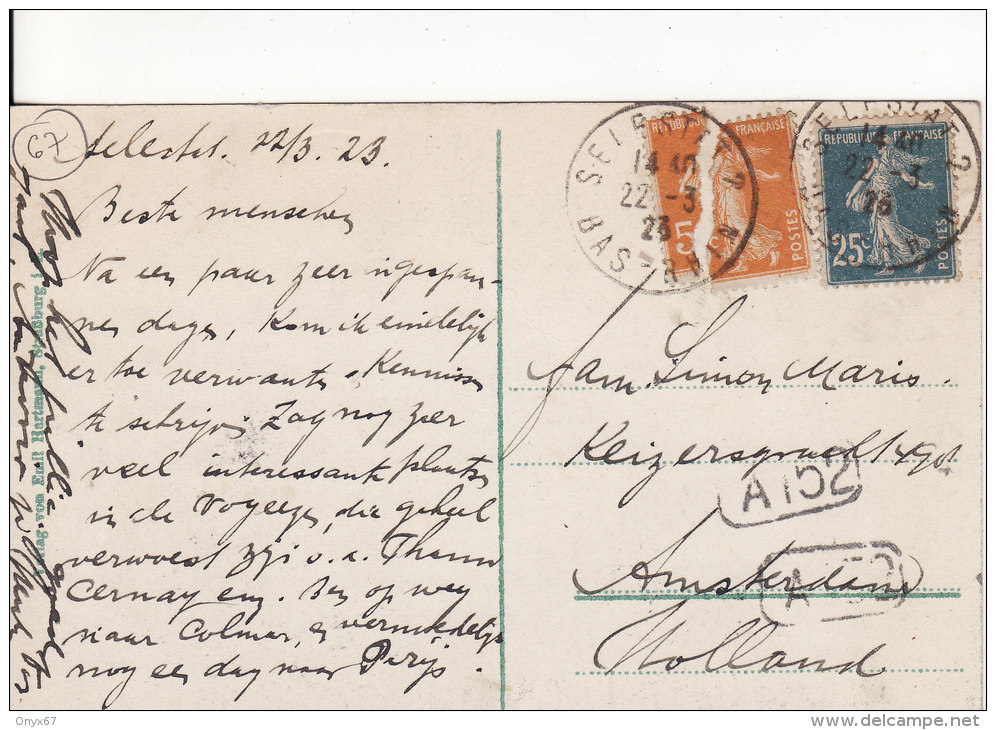 67
Selestat. 22/3. 23.
Beste menschen
Na een paar zeer ingespan-
nen dagen, kom ik eindelijk
er toe verwante & kennissen
te schrijven Zag nog zeer
veel interessante plaatsen
in de Vogeezen, die geheel
verwoest zijn o.a. Thann
Cernay enz. Ben op weg
naar Colmar, en vermoedelijk
nog een dag naar Parijs.
Verlag von Emil Hartmann, Straßburg i.
SELESTAT
14 40
22 -3
23
BAS-RHIN
REPUBLIQUE FRANÇAISE
5
POSTES
SELESTAT
14 40
22 -3
23
REPUBLIQUE FRANÇAISE
25c
POSTES
Fam. Simon Maris.
Keizersgracht 490
A152
Amsterdam
A 52
Holland
Onyx67
www.delcampe.net